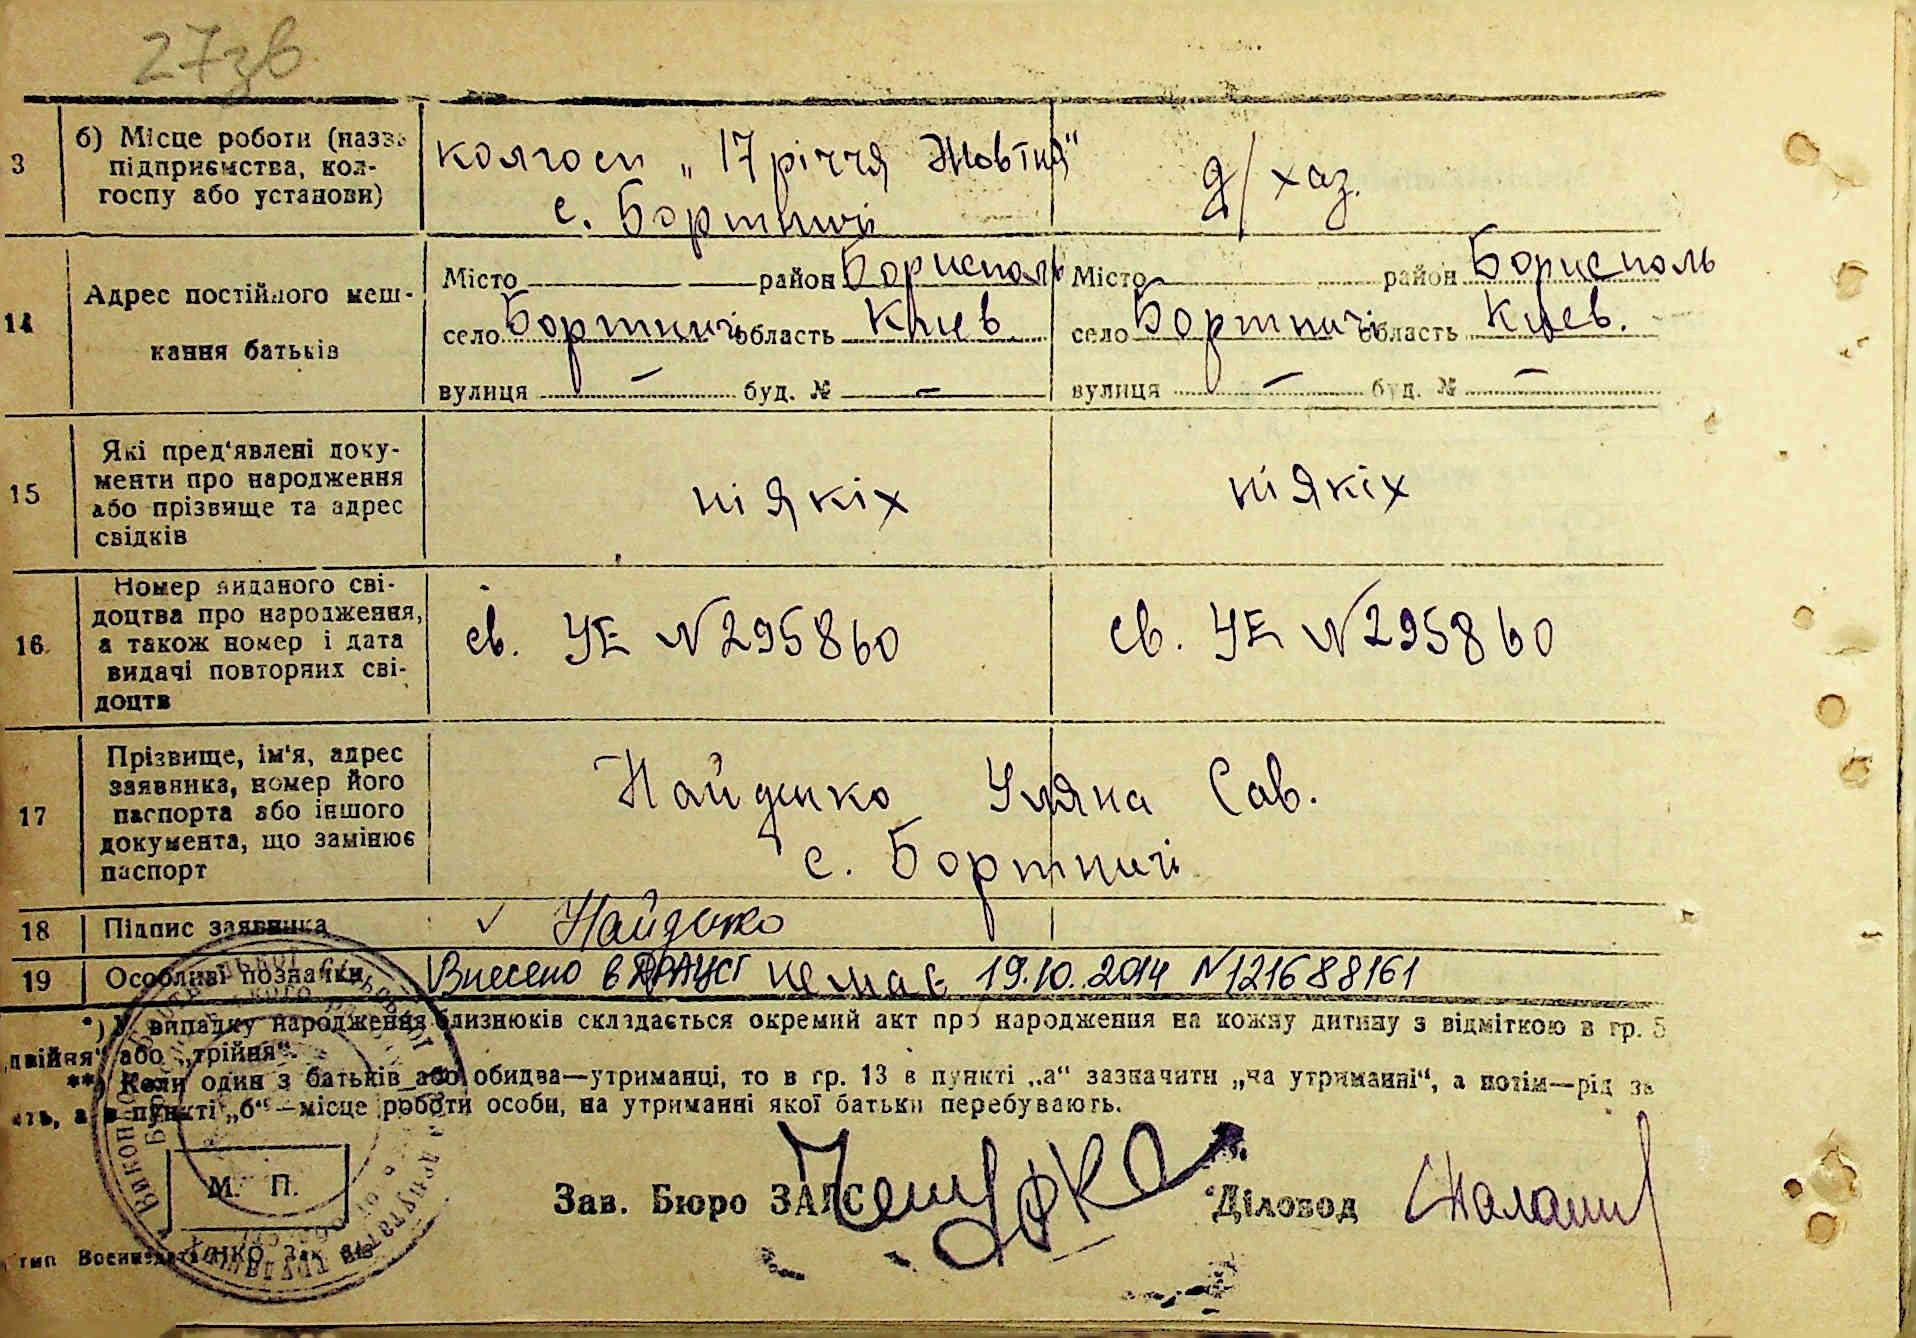 27зв
3
б) Місце роботи (назва
підприємства, кол-
госпу або установи)
колгосп „17 річчя Жовтня"
с. Бортничі
д/хаз.
14
Адрес постійного меш-
кання батьків
Місто район Борисполь
село Бортничі область Киев
вулиця — буд. № —
Місто район Борисполь
село Бортничі область Киев.
вулиця — буд. № —
15
Які пред'явлені доку-
менти про народження
або прізвище та адрес
свідків
ніякіх
ніякіх
16.
Номер виданого сві-
доцтва про народження,
а також номер і дата
видачі повторних сві-
доцтв
св. УЕ №295860
св. УЕ №295860
17
Прізвище, ім'я, адрес
заявника, номер його
паспорта або іншого
документа, що замінює
паспорт
Найденко Уляна Сав.
с. Бортничі
18
Підпис заявника
✓ Найденко
19
Особливі позначки
Внесено в ДРАЦСГ немає 19.10.2014 №121688161
*) У випадку народження близнюків складається окремий акт про народження на кожну дитину з відміткою в гр. 5
„двійня" або „трійня".
**) Коли один з батьків або обидва—утриманці, то в гр. 13 в пункті „а" зазначити „на утриманні", а потім—рід за
ать, а в пункті „б"—місце роботи особи, на утриманні якої батьки перебувають.
М. П.
Зав. Бюро ЗАГС
Діловод
тип Воениздата НКО Зак